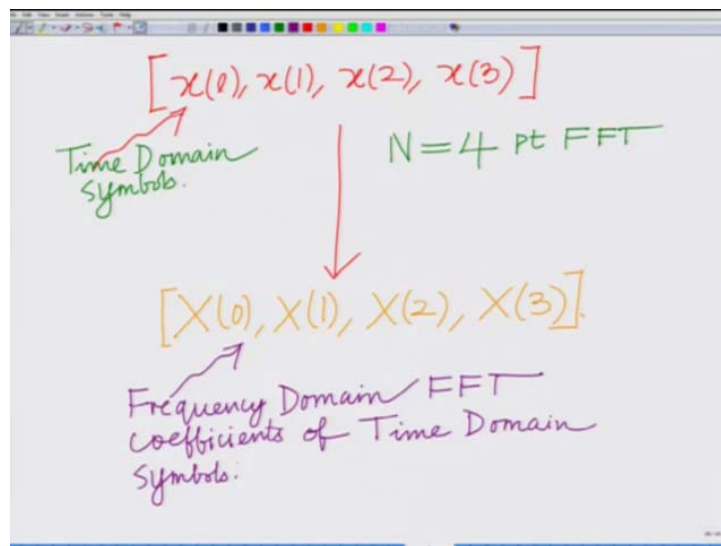 [x(0), x(1), x(2), x(3)]
Time Domain
symbols.
N=4 pt FFT
[X(0), X(1), X(2), X(3)].
Frequency Domain FFT
coefficients of Time Domain
symbols.